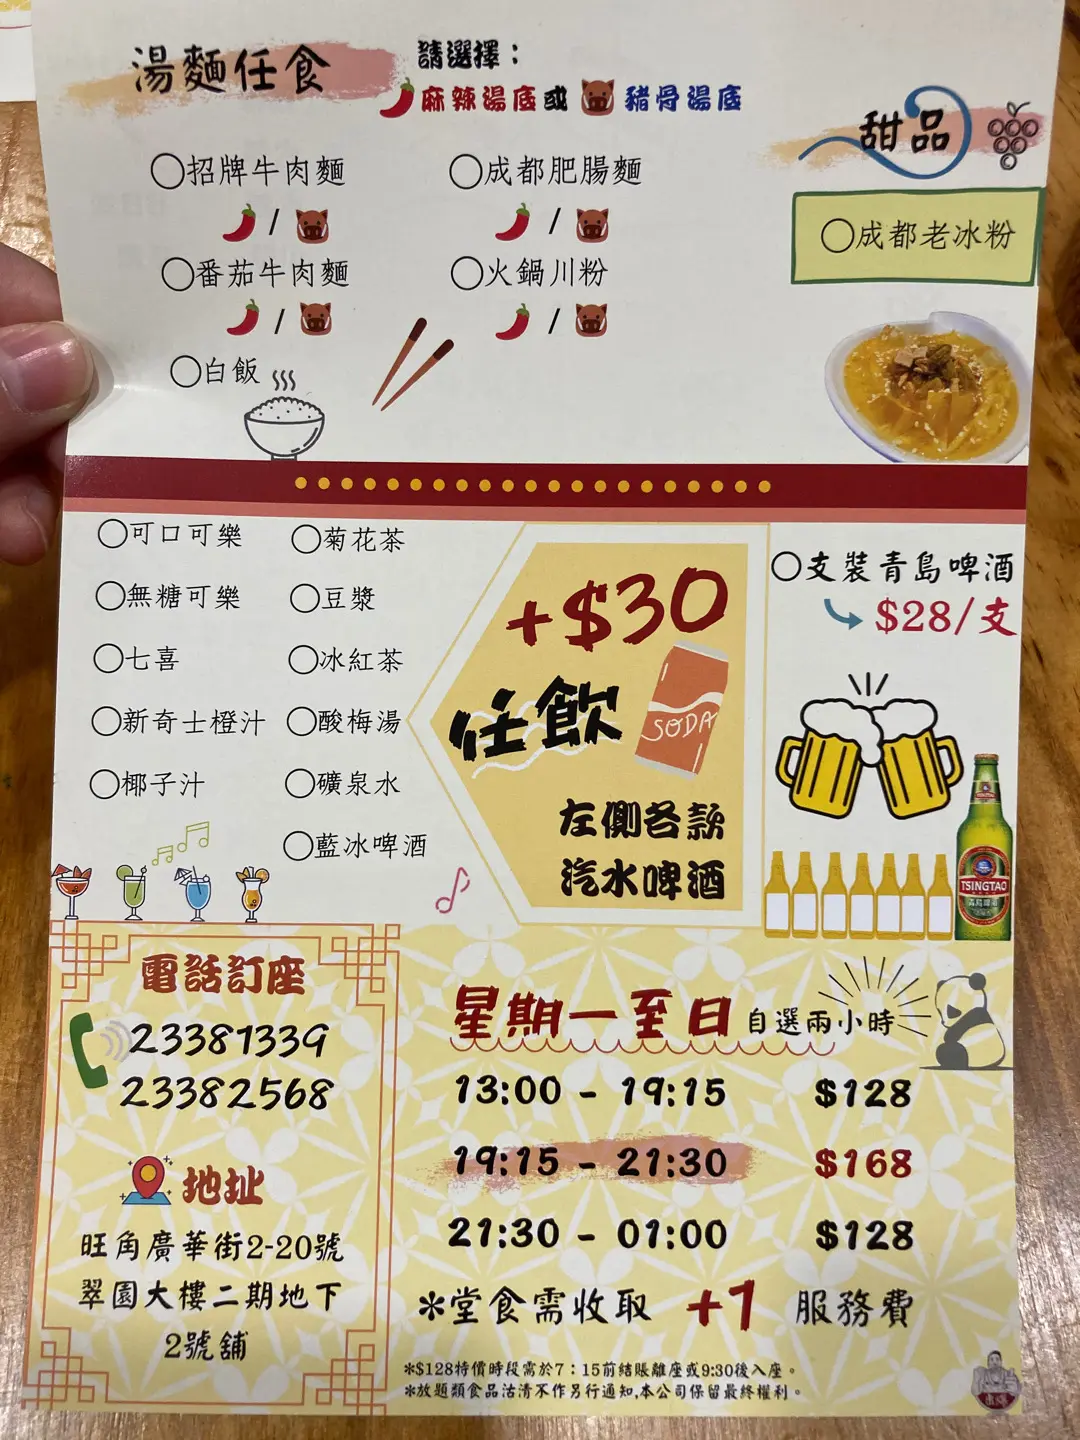 湯麵任食
請選擇：
麻辣湯底或 豬骨湯底
招牌牛肉麵
成都肥腸麵
/
/
番茄牛肉麵
火鍋川粉
/
/
白飯
甜品
成都老冰粉
可口可樂
菊花茶
無糖可樂
豆漿
七喜
冰紅茶
新奇士橙汁
酸梅湯
椰子汁
礦泉水
藍冰啤酒
+$30
任飲
SODA
左側各款
汽水啤酒
支裝青島啤酒
$28/支
TSINGTAO
電話訂座
23381339
23382568
地址
旺角廣華街2-20號
翠園大樓二期地下
2號舖
星期一至日 自選兩小時
13:00 - 19:15 $128
19:15 - 21:30 $168
21:30 - 01:00 $128
*堂食需收取 +1 服務費
*$128特價時段需於7：15前結賬離座或9:30後入座。
*放題類食品沽清不作另行通知,本公司保留最終權利。